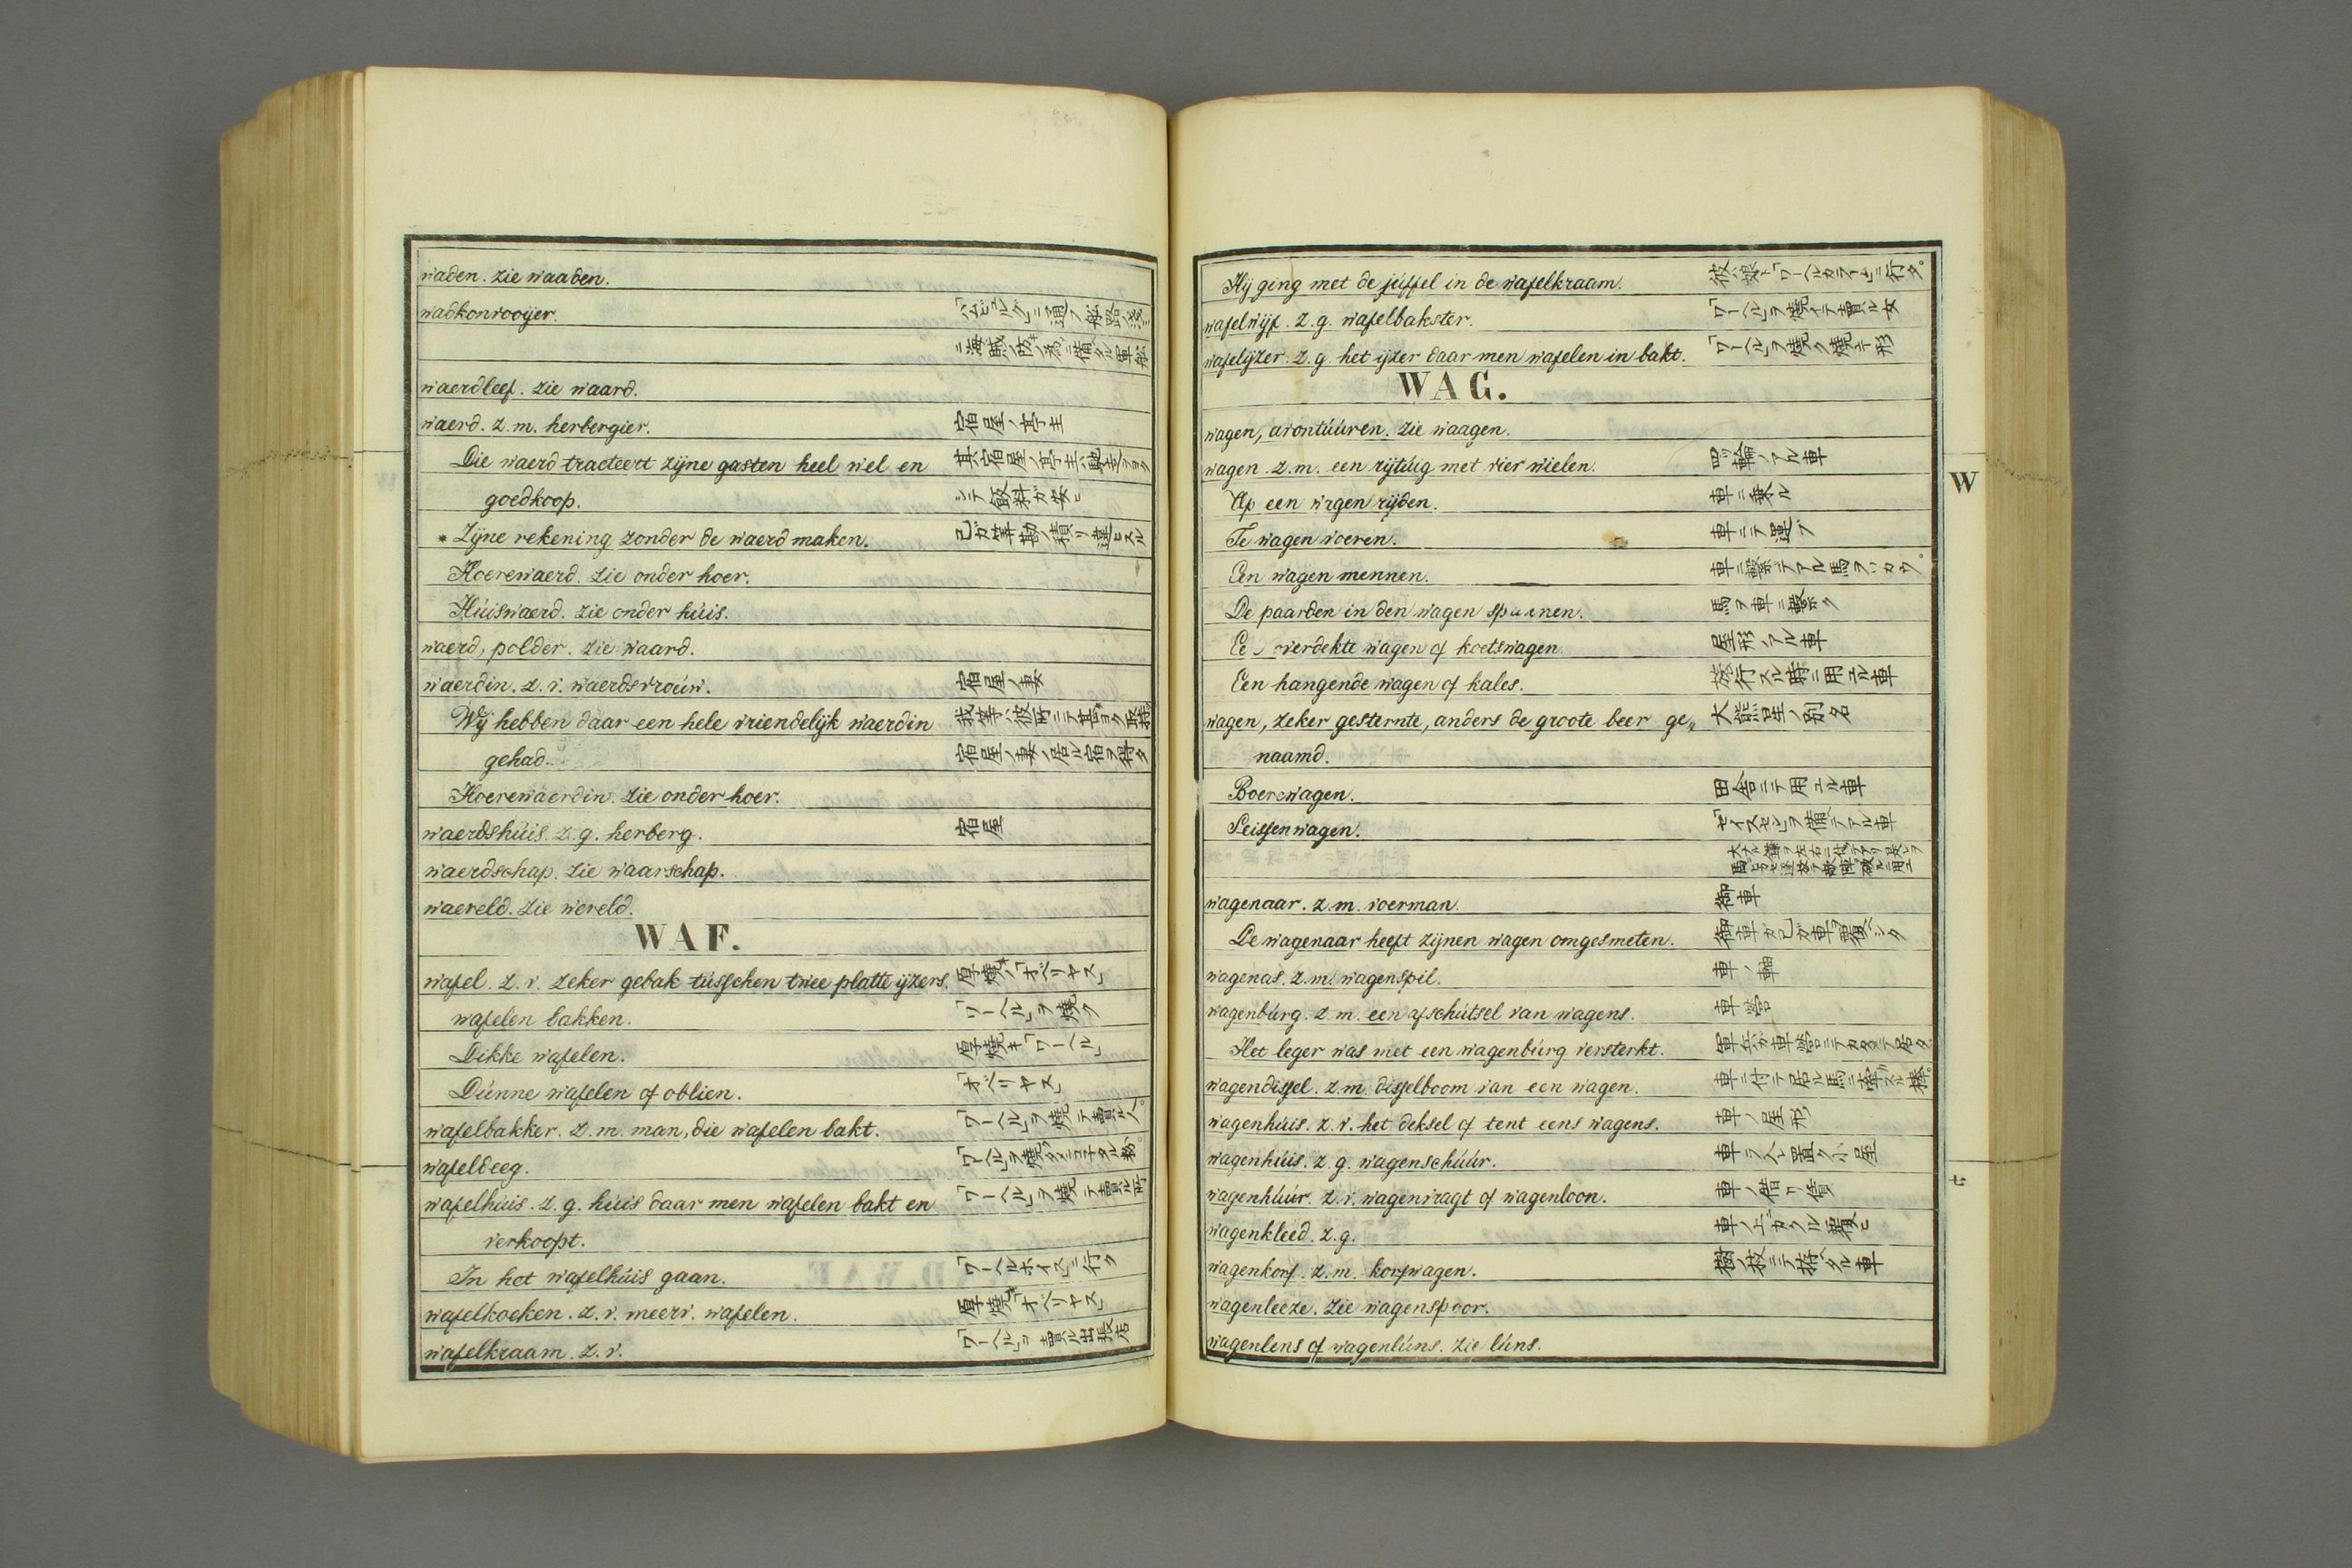 waden. zie waaden.
wadkonvooijer.
waerdleef. zie waard.
waerd. z.m. herbergier. 宿屋ノ亭主
Die waerd tracteert zijne gasten heel wel en 其宿屋ノ亭主ハ馳走ヲヨク
goedkoop. シテ飯料ガ安ヒ
* Zijne rekening zonder de waerd maken. 己ガ筭勘ノ積リ違ヒスル
Hoerewaerd. zie onder hoer.
Húiswaerd. zie onder húis.
waerd, polder. zie waard.
waerdin. z.v. waerdsvroúw. 宿屋ノ妻
Wij hebben daar een hele vriendelijk waerdin
gehad. 宿屋ノ妻ノ居ル宿ヲ得タ
Hoerewaerdin. zie onder hoer.
waerdshúis. z.g. herberg. 宿屋
waerdschap. zie waarschap.
waereld. zie wereld.
WAF.
wafel. z.v. zeker gebak tússchen twee platte ijzers. 厚焼キノ「オベリヤス」
wafelen bakken. 「ワーヘル」ヲ焼ク
Dikke wafelen. 厚焼キ「ワーヘル」
Dúnne wafelen of oblien. 「オベリヤス」
wafelbakker. z.m. man, die wafelen bakt. 「ワーヘル」ヲ焼テ賣ル人。
wafeldeeg.
wafelhúis. z.g. húis daar men wafelen bakt en 「ワーヘル」ヲ焼テ賣ル所
verkoopt.
In het wafelhúis gaan. 「ワーヘルホイス」ニ行ク
wafelkoeken. z.v. meerv. wafelen. 厚焼キ「オベリヤス」
wafelkraam. z.v. 「ワーヘル」ヲ賣ル出張店
Hij ging met de júffel in de wafelkraam. 彼ハ娘ト「ワーヘルカラーム」ニ行タ。
wafelwijf. z.g. wafelbakster. 「ワーヘル」ヲ焼イテ賣ル女
wafelijzer. z.g. het ijzer daar men wafelen in bakt. 「ワーヘル」ヲ焼ク焼キ形
WAG.
wagen, avontúúren. zie waagen.
wagen. z.m. een rijtúig met vier wielen. 四ツ輪ノアル車
W
Op een wagen rijden. 車ニ乗ル
Te wagen voeren. 車ニテ運ブ
Een wagen mennen. 車ニ繋テアル馬ヲツカウ。
De paarden in den wagen spannen. 馬ヲ車ニ繋ク
overdekte wagen of koetswagen 屋形ノアル車
Een hangende wagen of kales. 旅行スル時ニ用ユル車
wagen, zeker gesternte, anders de groote beer ge„ 大熊星ノ別名
naamd.
Boerewagen. 田舎ニテ用ユル車
Seissenwagen. 「セイスセン」ヲ備テアル車
wagenaar. z.m. voerman. 御車
De wagenaar heeft zijnen wagen omgesmeten. 御車ガ己ガ車ヲ覆ヘシタ
wagenas. z.m. wagenspil. 車ノ軸
wagenbúrg. z.m. een afschútsel van wagens. 車營
Het leger was met een wagenbúrg versterkt. 軍兵ガ車營ニテカタメテ居タ
wagendissel. z.m. disselboom van een wagen.
wagenhúis. z.v. het deksel of tent eens wagens. 車ノ屋形
wagenhúis. z.g. wagenschúúr. 車ヲ入レ置ク小屋
wagenhúúr. z.v. wagenvragt of wagenloon. 車ノ借リ賃
wagenkleed. z.g. 車ノ上ガワル覆ヒ
wagenkorf. z.m. korfwagen. 樹ノ枝ニテ拵ヘタル車
七
wagenleeze. zie wagenspoor.
wagenlens of wagenlúns. zie lúns.